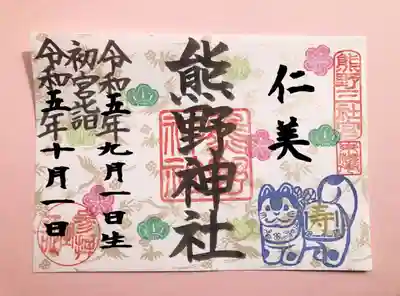 仁美
熊野神社
令和五年九月一日生
初宮詣
令和五年十月一日
寿